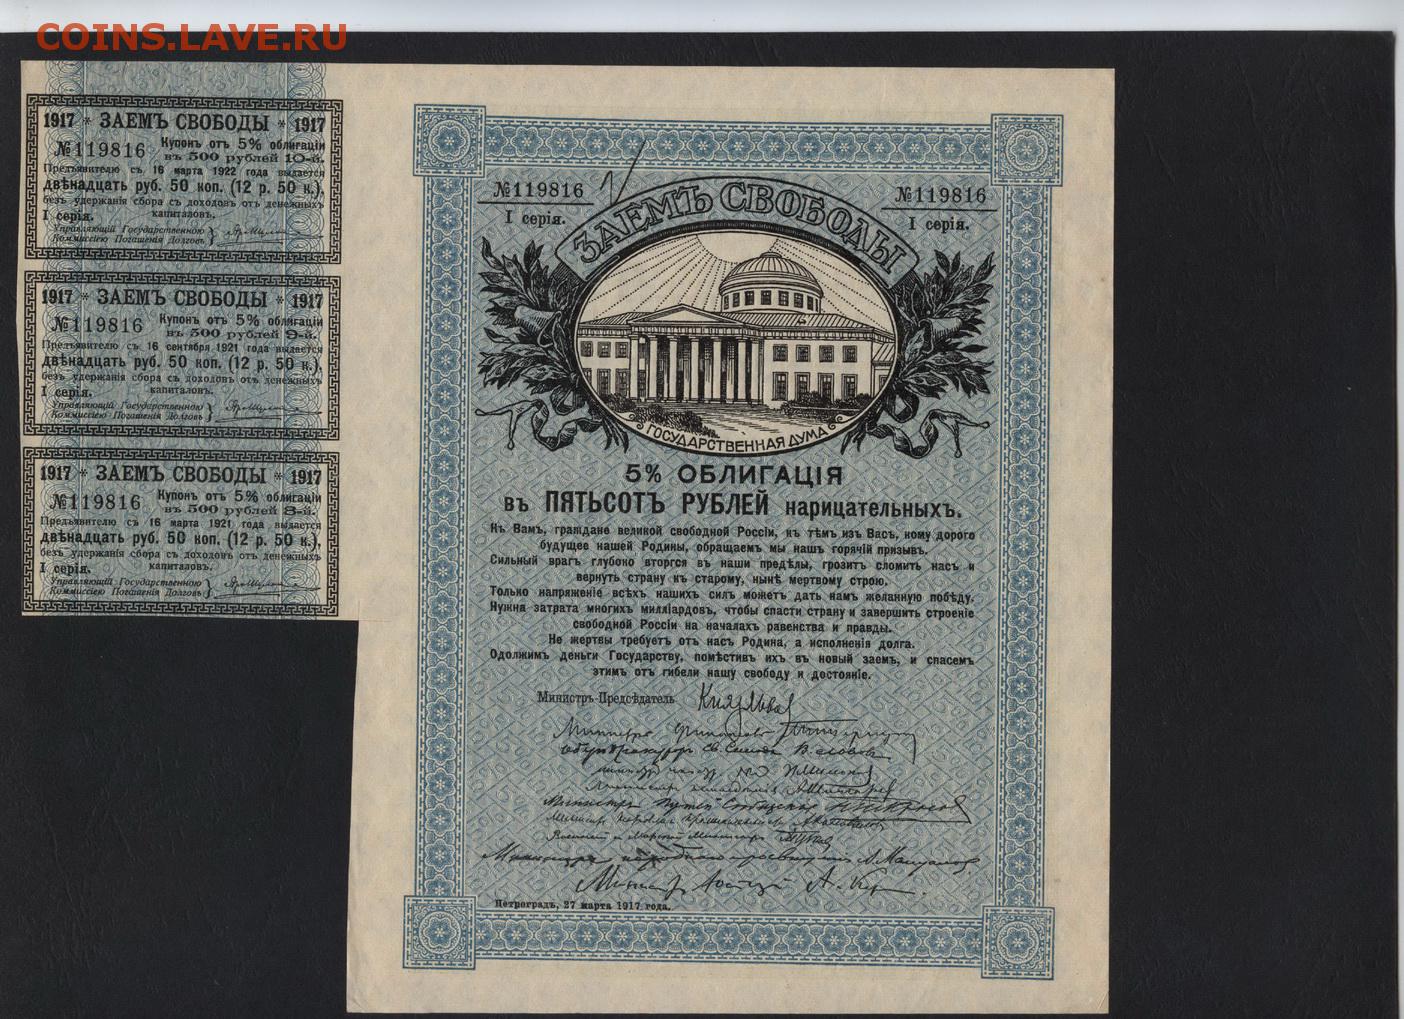 COINS.LAVE.RU
1917 * ЗАЕМЪ СВОБОДЫ * 1917
№119816 Купонъ отъ 5% облигаціи
въ 500 рублей 10-й.
Предъявителю съ 16 марта 1922 года выдается
двѣнадцать руб. 50 коп. (12 р. 50 к.),
безъ удержанія сбора съ доходовъ отъ денежныхъ
I серія. капиталовъ.
Управляющій Государственною
Коммиссіею Погашенія Долговъ
1917 * ЗАЕМЪ СВОБОДЫ * 1917
№119816 Купонъ отъ 5% облигаціи
въ 500 рублей 9-й.
Предъявителю съ 16 сентября 1921 года выдается
двѣнадцать руб. 50 коп. (12 р. 50 к.),
безъ удержанія сбора съ доходовъ отъ денежныхъ
I серія. капиталовъ.
Управляющій Государственною
Коммиссіею Погашенія Долговъ
1917 * ЗАЕМЪ СВОБОДЫ * 1917
№119816 Купонъ отъ 5% облигаціи
въ 500 рублей 8-й.
Предъявителю съ 16 марта 1921 года выдается
двѣнадцать руб. 50 коп. (12 р. 50 к.),
безъ удержанія сбора съ доходовъ отъ денежныхъ
I серія. капиталовъ.
Управляющій Государственною
Коммиссіею Погашенія Долговъ
№119816 №119816
I серія. I серія.
ЗАЕМЪ СВОБОДЫ
ГОСУДАРСТВЕННАЯ ДУМА
5% ОБЛИГАЦІЯ
въ ПЯТЬСОТЪ РУБЛЕЙ нарицательныхъ.
Къ Вамъ, граждане великой свободной Россіи, къ тѣмъ изъ Васъ, кому дорого
будущее нашей Родины, обращаемъ мы нашъ горячій призывъ.
Сильный врагъ глубоко вторгся въ наши предѣлы, грозитъ сломить насъ и
вернуть страну къ старому, нынѣ мертвому строю.
Только напряженіе всѣхъ нашихъ силъ можетъ дать намъ желанную побѣду.
Нужна затрата многихъ милліардовъ, чтобы спасти страну и завершить строеніе
свободной Россіи на началахъ равенства и правды.
Не жертвы требуетъ отъ насъ Родина, а исполненія долга.
Одолжимъ деньги Государству, помѣстивъ ихъ въ новый заемъ, и спасемъ
этимъ отъ гибели нашу свободу и достояніе.
Министръ-Предсѣдатель Князь Львов
Министръ Финансовъ
Оберъ-Прокурор Св. Синода В. Львов
Министръ Путей Сообщения Н. Некрасов
Военный и Морской Министръ
Министръ народного просвещения А. Мануилов
Министр Юстиции А. Кер
Петроградъ, 27 марта 1917 года.